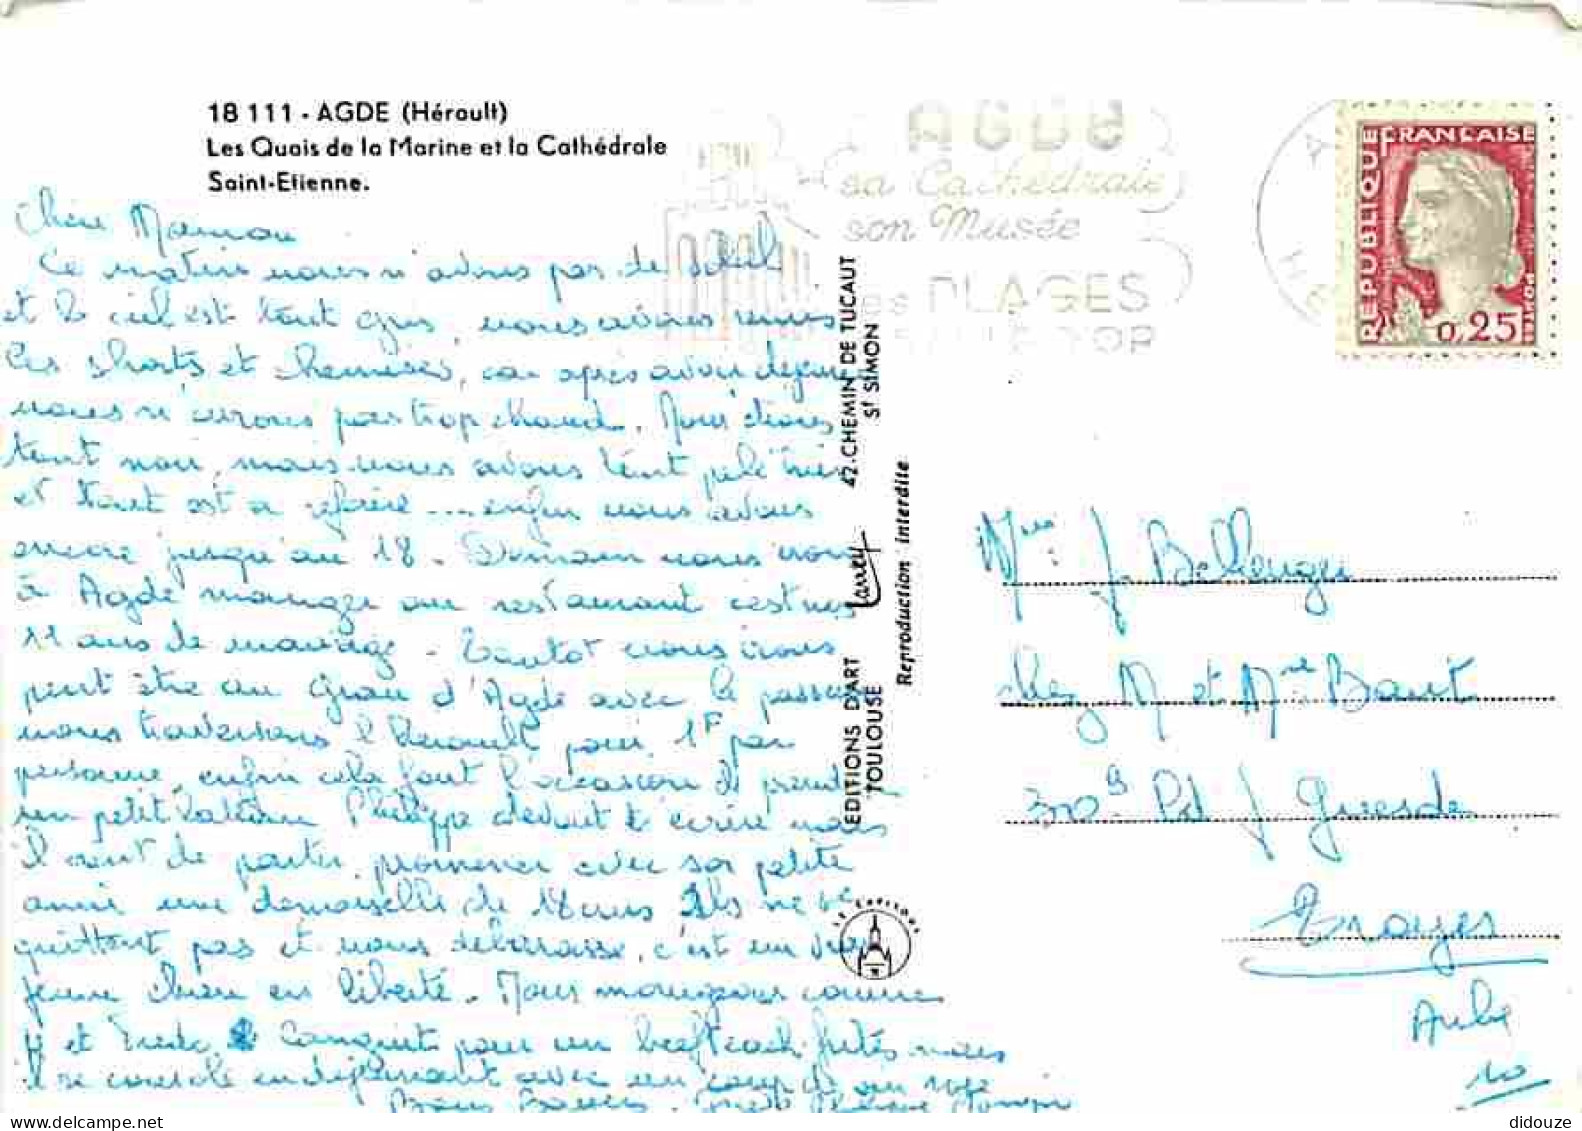 18 111 - AGDE (Hérault)
Les Quais de la Marine et la Cathédrale
Saint-Etienne.
AGDE
sa Cathédrale
son Musée
PLAGES
REPUBLIQUE FRANÇAISE
0,25
POSTES
Chère Maman
Ce matin nous n'avons pas de soleil
et le ciel est tout gris, nous avons remis
les shorts et chemises, car après avoir déjeuné
nous n'aurons pas trop chaud. Nous étions
tout noir, mais nous avons tant pelé hier
et tout est a refaire .... enfin nous avons
encore jusqu'au 18. Demain nous irons
à Agde manger au restaurant c'est nos
11 ans de mariage - Tantot nous irons
peut être au Grau d'Agde avec le passeur
nous traversons l'Herault pour 1F par
personne, enfin cela fait l'occasion de prendre
un petit bateau Philippe devait t'écrire mais
il vient de partir promener avec sa petite
amie une demoiselle de 18 ans Ils ne se
quittent pas et nous debarrasse, c'est un vrai
jeune chien en liberté. Nous mangeons comme
4 et pour un beefteack frites mais
il se console en déjeunant avec un coup de
Bons Baisers Philippe
42. CHEMIN DE TUCAUT
St SIMON
Larrey
Reproduction interdite
EDITIONS D'ART
TOULOUSE
LE CAPITOUL
Mme J. Bellenger
chez M et Mme Baut
Bd J Guesde
Troyes
Aube
10
didouze